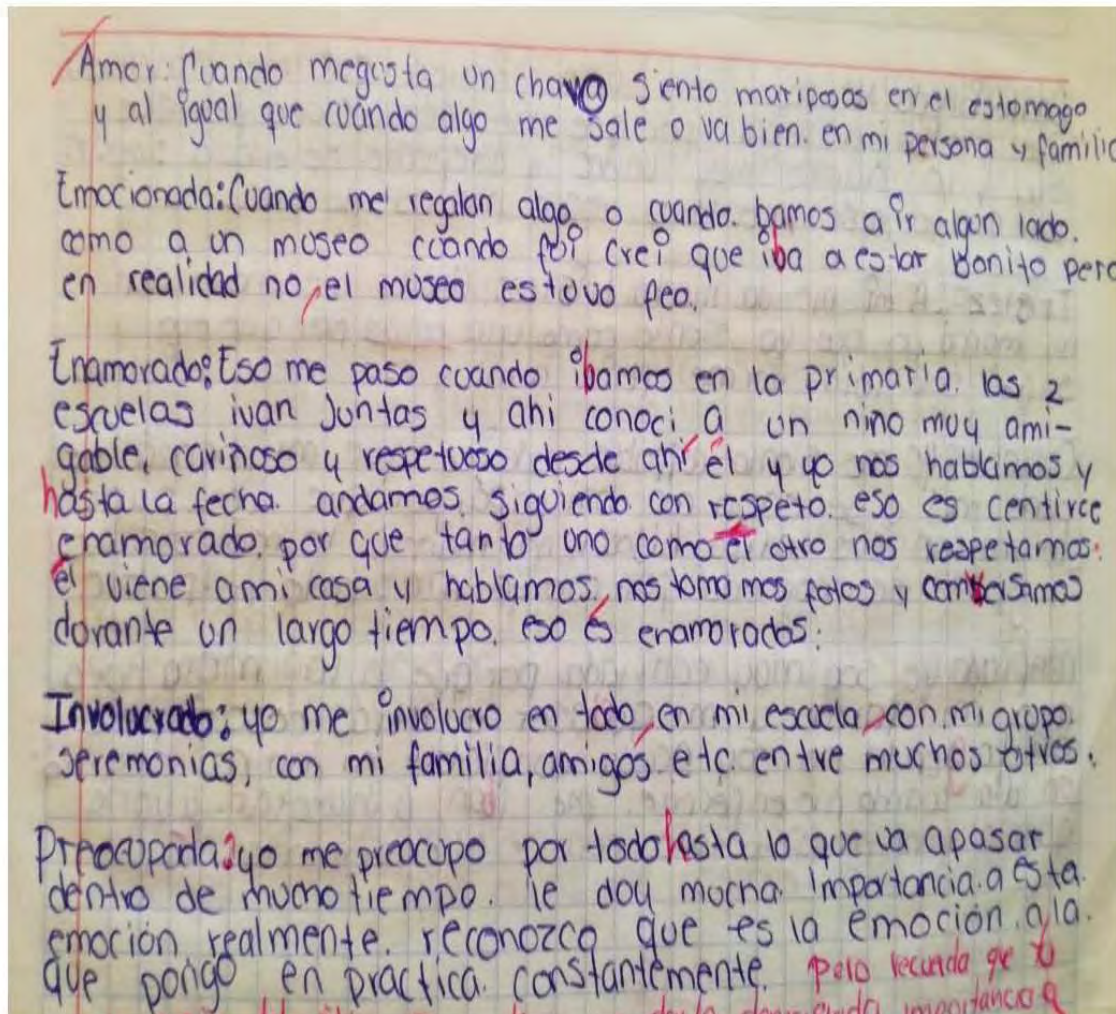 Amor: Cuando megusta un chavo siento mariposas en el estomago
y al igual que cuando algo me sale o va bien. en mi persona y familia
Emocionada: Cuando me regalan algo o cuando. bamos a ir algun lado.
como a un museo cuando fui crei que iba a estar Bonito pero
en realidad no, el museo estuvo feo.
Enamorado: Eso me paso cuando ibamos en la primaria. las 2
escuelas ivan Juntas y ahi conoci a un nino muy ami-
gable, cariñoso y respetuoso desde ahí él y yo nos hablamos y
hasta la fecha. andamos. siguiendo con respeto. eso es centirce
enamorado. por que tanto uno como el otro nos respetamos.
él viene ami casa y hablamos, nos tomamos fotos y conversamos
durante un largo tiempo. eso és enamorados.
Involucrado: yo me involucro en todo, en mi escuela, con. mi grupo.
seremonias, con mi familia, amigos. etc. entre muchos otros.
Preocupada: yo me preocupo por todo hasta lo que va apasar
dentro de mucho tiempo. le doy mucha. Importancia. a esta.
emoción realmente. reconozco que es la emoción. a la.
que pongo en practica. constantemente. Pero recuerda que tu
importancia a